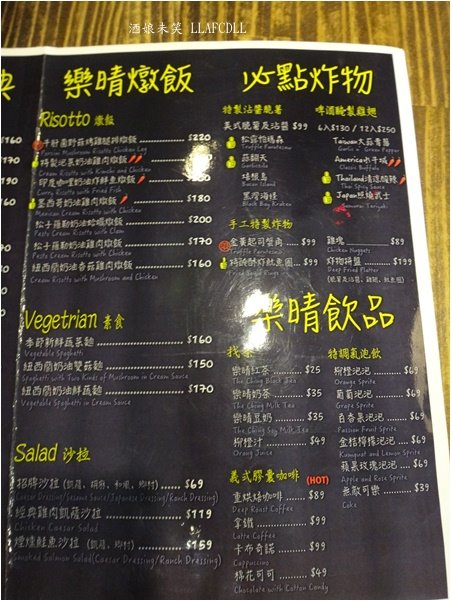 酒娘未笑 LLAFCDLL
典
$160
$160
$170
$160
樂晴燉飯
Risotto 燉飯
$220
Parmesan Mushroom Risotto Chicken Leg
特製泡菜奶油雞肉燉飯 $160
Cream Risotto with Kimchi and Chicken
Cream Risotto with Fried Fish
墨西哥奶油雞肉燉飯 $180
Mexican Cream Risotto with Chicken
松子羅勒奶油蛤蠣燉飯 $200
Pesto Cream Risotto with Clam
松子羅勒奶油雞肉燉飯 $170
Pesto Cream Risotto with Chicken
紐西蘭奶油杏菇雞肉燉飯 $160
Cream Risotto with Mushroom and Chicken
Vegetrian 素食
季節新鮮蔬菜麵 $160
Vegetable Spaghetti
紐西蘭奶油雙菇麵 $150
Spaghetti with Two Kinds of Mushroom in Cream Sauce
紐西蘭奶油鮮蔬麵 $170
Vegetable Spaghetti in Cream Sauce
Salad 沙拉
招牌沙拉 $69
Caesar Dressing/Sesame Sauce/Japanese Dressing/Ranch Dressing)
經典雞肉凱薩沙拉 $119
Chicken Caesar Salad
煙燻鮭魚沙拉 $159
Smoked Salmon Salad(Caesar Dressing/Ranch Dressing)
必點炸物
特製沾醬脆薯
美式脆薯及沾醬 $99
松露帕瑪森
Truffle Parmesan
蒜翻天
培根島
Bacon Island
黑胡海怪
Black Bay Kraken
手工特製炸物
金黃起司柴角 $99
特調酥炸魷魚圈 $99
Fried Squid Rings
啤酒醃製雞翅
6入$130 / 12入$250
Taiwan大蒜青醬
Garlic n' Green Pepper
America水牛城
Classic Buffalo
Thailand清邁酸辣
Thai Spicy Sauce
Japan照燒武士
Samurai Teriyaki
雞塊 $89
Chicken Nuggets
炸物拼盤 $199
Deep Fried Platter
(脆薯及沾醬、雞翅、魷魚圈)
樂晴飲品
樂晴紅茶 $25
The Ching Black Tea
樂晴奶茶 $35
The Ching Milk Tea
樂晴豆奶 $35
The Ching Soy Milk Tea
柳橙汁 $49
Orange Juice
義式膠囊咖啡 (HOT)
重烘焙咖啡 $89
Deep Roast Coffee
拿鐵 $99
Latte Coffee
卡布奇諾 $99
Cappuccino
棉花可可 $49
Chocolate with Cotton Candy
特調氣泡飲
柳橙泡泡 $69
Orange Sprite
葡萄泡泡 $69
Grape Sprite
百香果泡泡 $69
Passion Fruit Sprite
金桔檸檬泡泡 $69
Kumquat and Lemon Sprite
蘋果玫瑰泡泡 $69
Apple and Rose Sprite
無敵可樂 $39
Coke